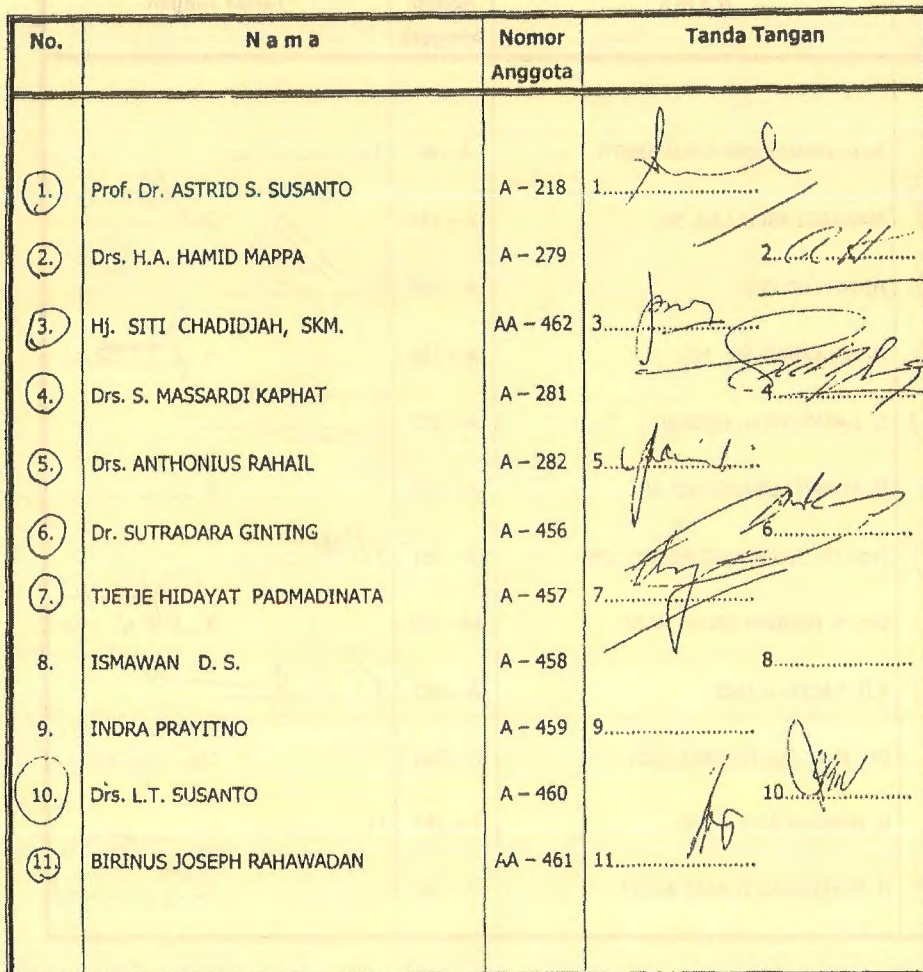 No. N a m a Nomor Anggota Tanda Tangan
1. Prof. Dr. ASTRID S. SUSANTO A – 218 1....................
2. Drs. H.A. HAMID MAPPA A – 279 2....................
3. Hj. SITI CHADIDJAH, SKM. AA – 462 3....................
4. Drs. S. MASSARDI KAPHAT A – 281 4....................
5. Drs. ANTHONIUS RAHAIL A – 282 5....................
6. Dr. SUTRADARA GINTING A – 456 6....................
7. TJETJE HIDAYAT PADMADINATA A – 457 7....................
8. ISMAWAN D. S. A – 458 8....................
9. INDRA PRAYITNO A – 459 9....................
10. Drs. L.T. SUSANTO A – 460 10....................
11. BIRINUS JOSEPH RAHAWADAN AA – 461 11....................